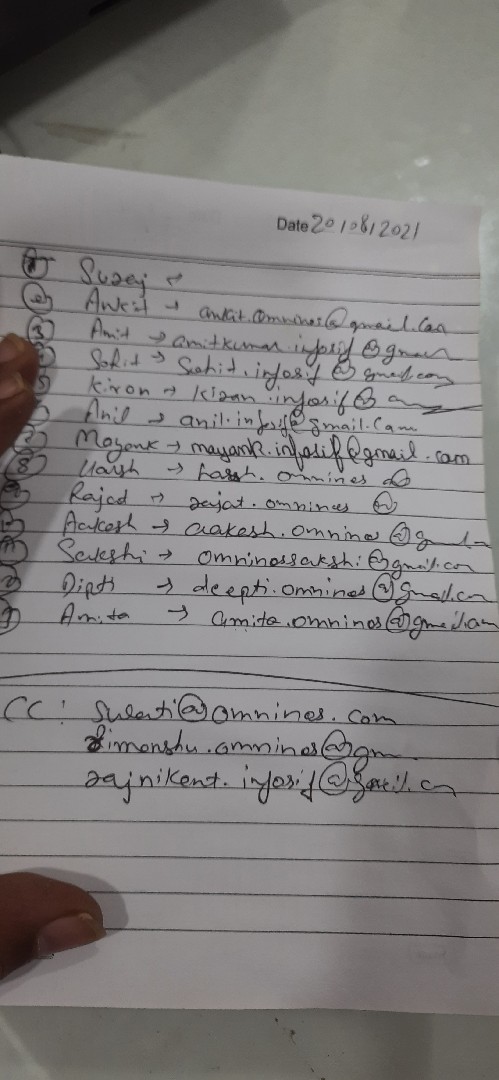 Date 20/08/2021
① Suraj →
② Ankit → ankit.omninos@gmail.com
③ Amit → amitkumar.infosif@gmail
Sohit → Sohit.infosif@gmail.com
5 Kiran → kiran.infosif@
Anil → anil.infosif@gmail.com
Mayank → mayank.infosif@gmail.com
⑧ Harsh → harsh.omninos @
Rajad → rajat.omninos @
Aakash → aakash.omninos@
Sakshi → omninossakshi@gmail.com
Dipti → deepti.omninos@gmail.com
Amita → amita.omninos@gmail.com
CC: @omninos.com
himanshu.omninos@gm
rajnikant.infosif@gmail.com